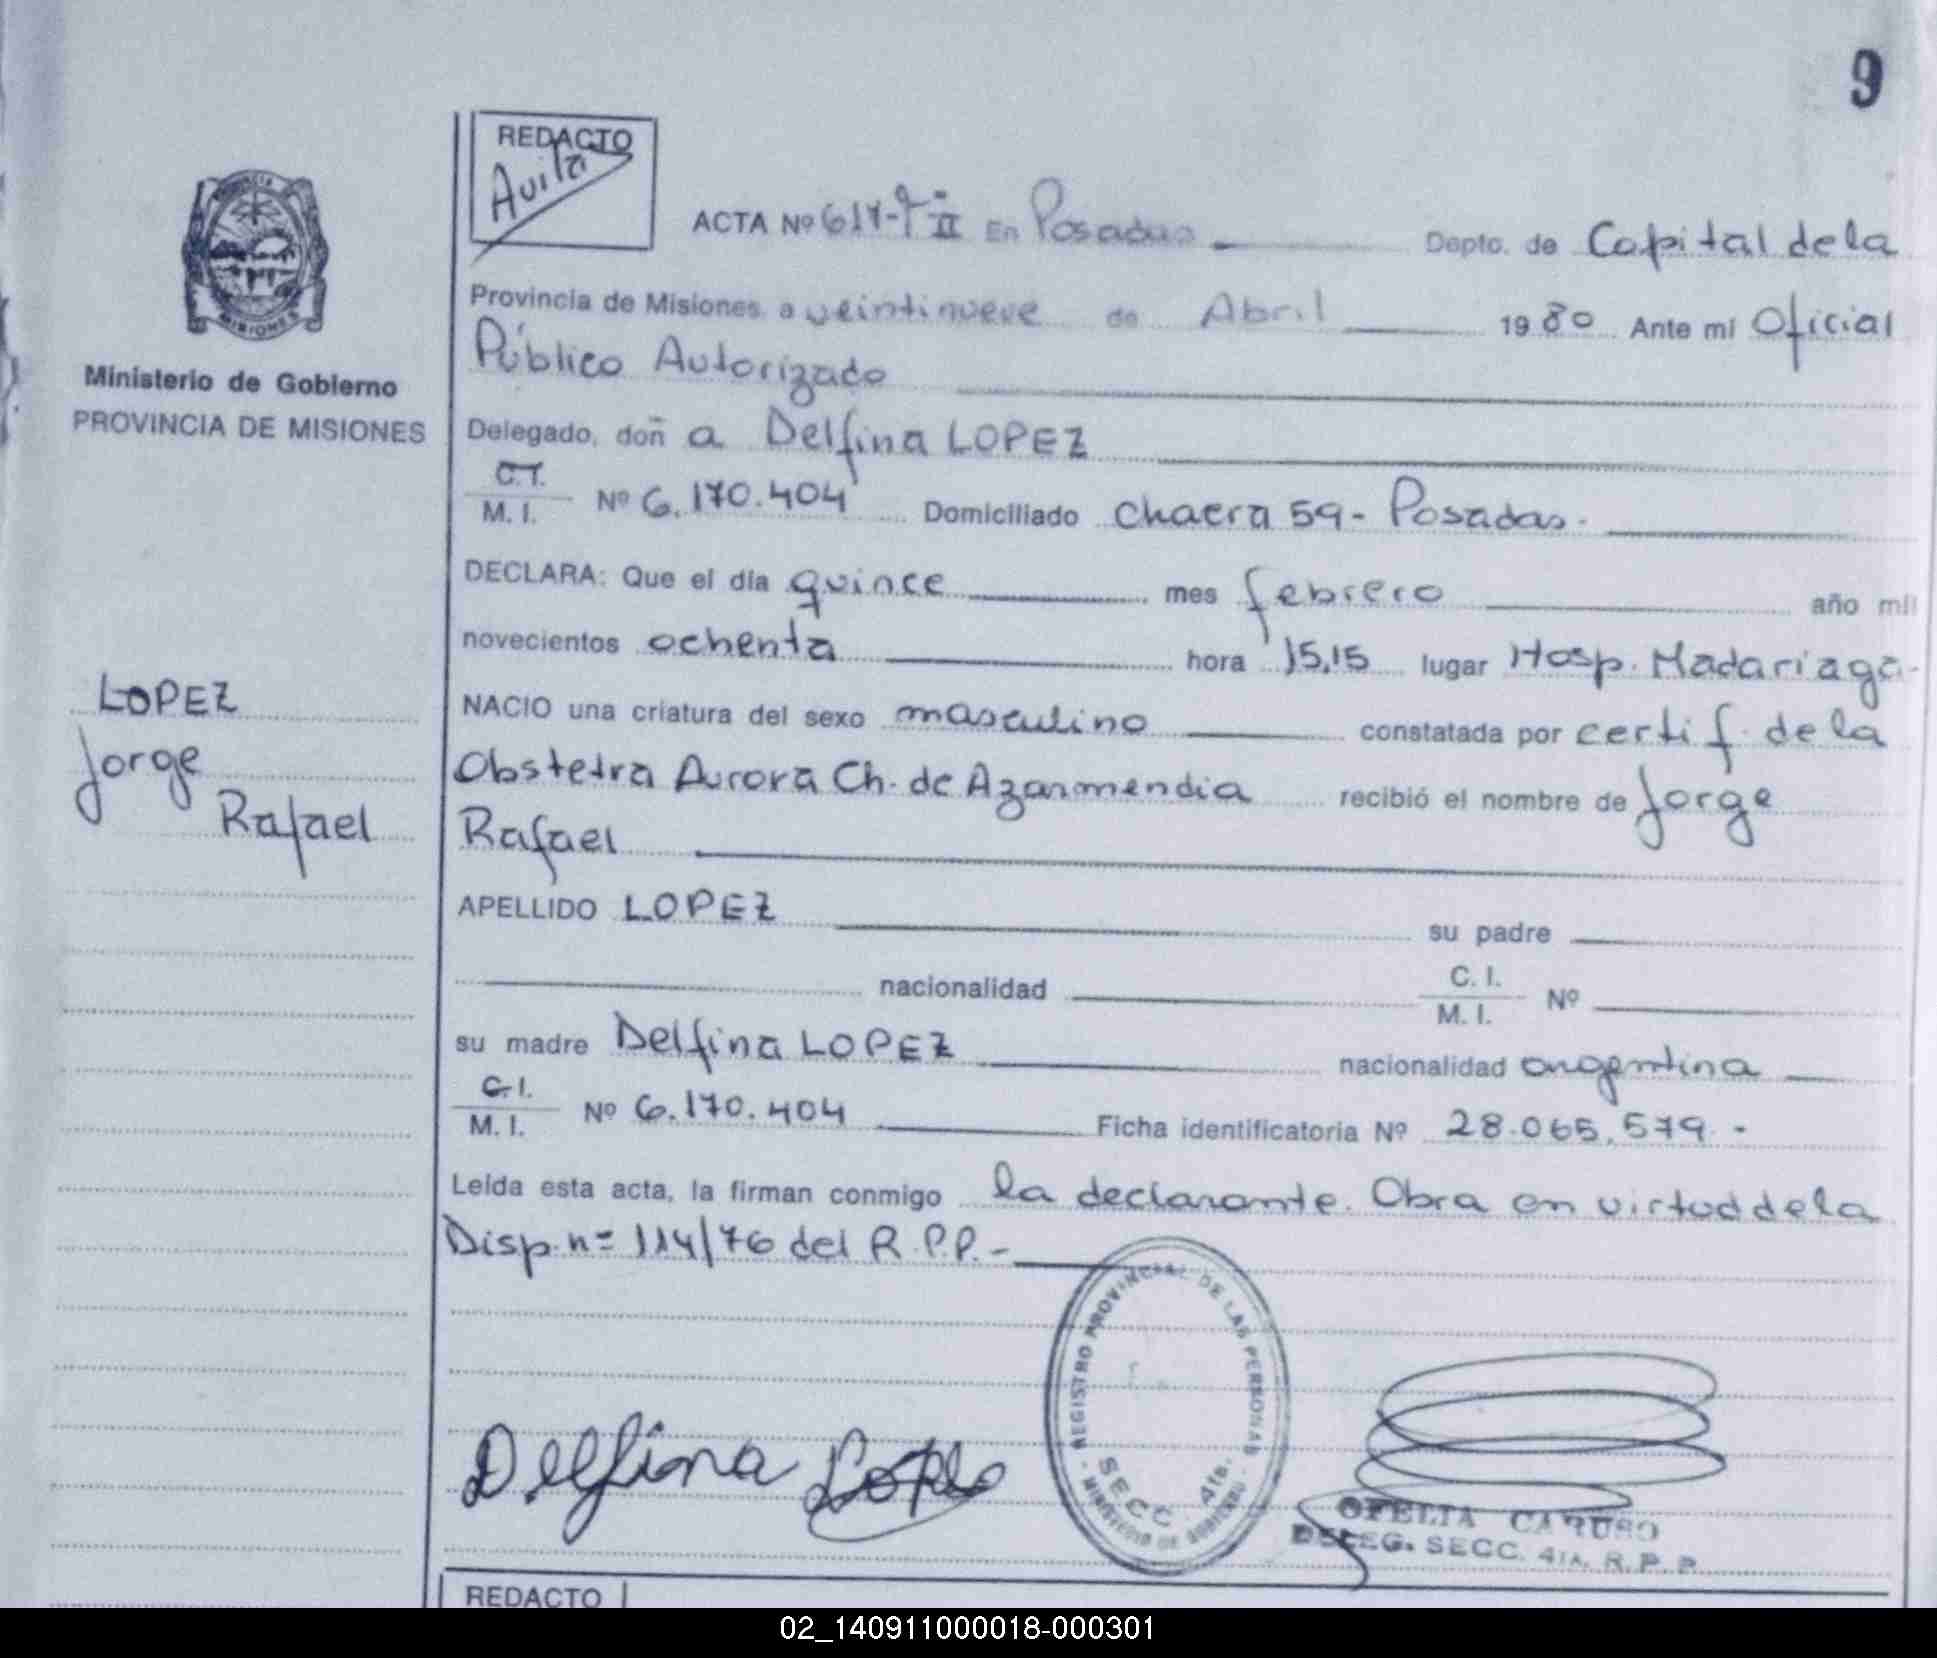 9
REDACTO
Avila
PROVINCIA
MISIONES
Ministerio de Gobierno
PROVINCIA DE MISIONES
LOPEZ
Jorge
Rafael
ACTA Nº En Posadas Depto. de Capital de la
Provincia de Misiones, a veintinueve de Abril 1980 Ante mi Oficial
Público Autorizado
Delegado, doña Delfina LOPEZ
C.I. M. I. Nº 6.170.404 Domiciliado chacra 59 - Posadas.
DECLARA: Que el día quince mes febrero año mil
novecientos ochenta hora 15,15 lugar Hosp. Madariaga-
NACIO una criatura del sexo masculino constatada por certif. de la
Obstetra Aurora Ch. de Azarmendia recibió el nombre de Jorge
Rafael
APELLIDO LOPEZ su padre
nacionalidad C. I. M. I. Nº
su madre Delfina LOPEZ nacionalidad argentina
C.I. M. I. Nº 6.170.404 Ficha identificatoria Nº 28.065.579.-
Leída esta acta, la firman conmigo la declarante. Obra en virtud de la
Disp. nº 114/76 del R.P.P.-
REGISTRO PROVINCIAL DE LAS PERSONAS
SECC. 4ta.
MINISTERIO DE GOBIERNO
Delfina Lopez
OFELIA CARUSO
DELEG. SECC. 4TA. R. P. P.
REDACTO
02_140911000018-000301